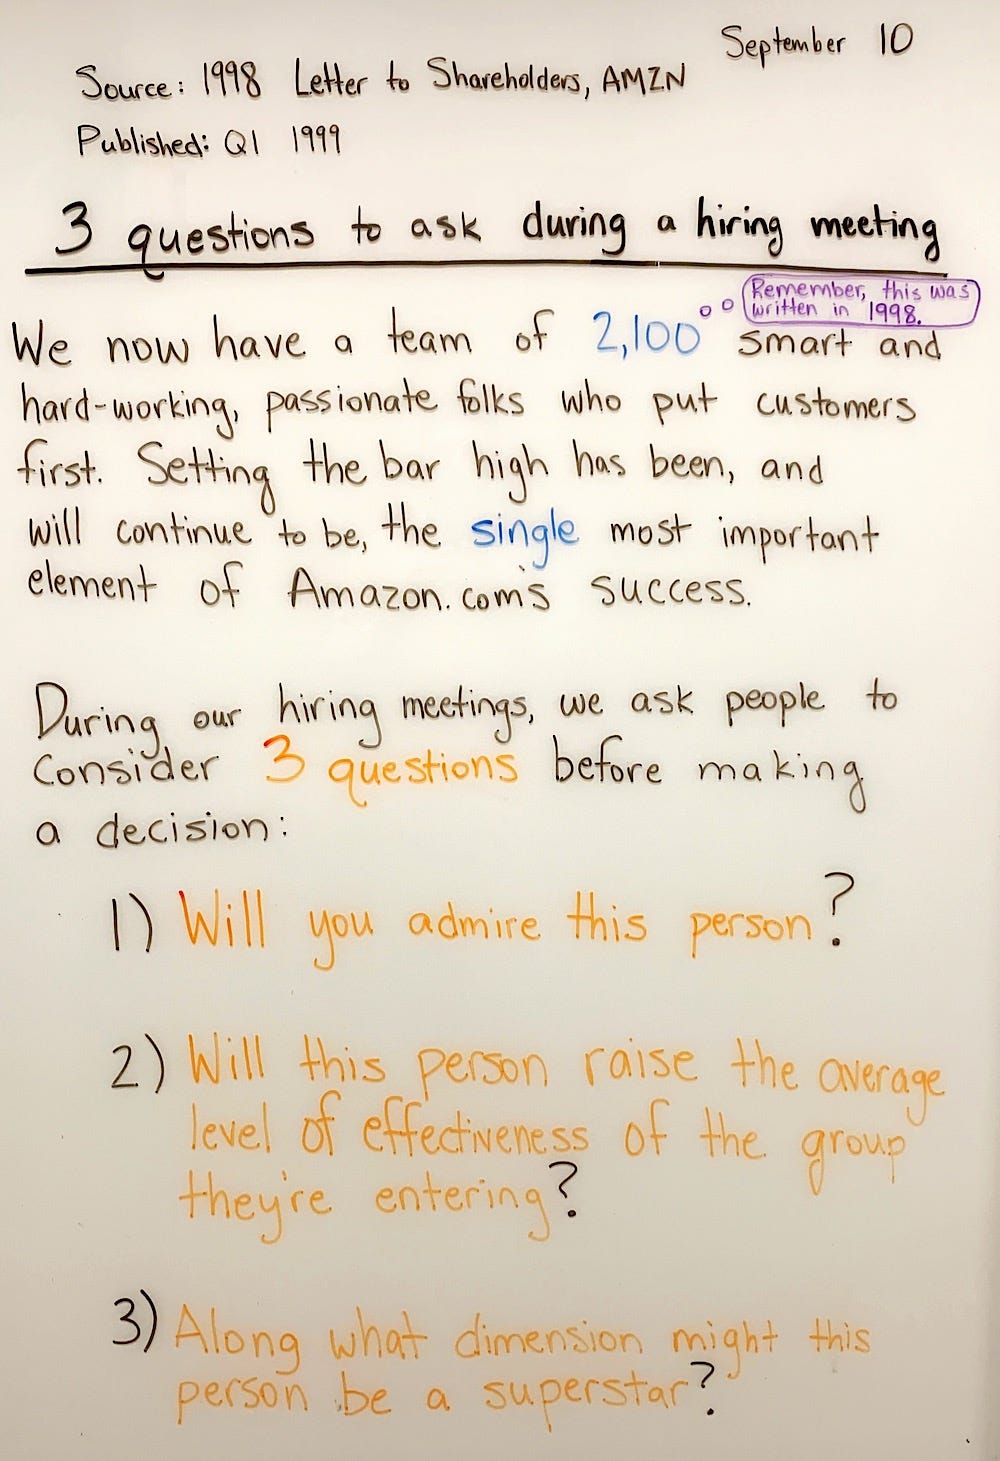 September 10
Source: 1998 Letter to Shareholders, AMZN
Published: Q1 1999
3 questions to ask during a hiring meeting
Remember, this was
written in 1998.
We now have a team of 2,100 smart and
hard-working, passionate folks who put customers
first. Setting the bar high has been, and
will continue to be, the single most important
element of Amazon.com's success.
During our hiring meetings, we ask people to
consider 3 questions before making
a decision:
1) Will you admire this person?
2) Will this person raise the average
level of effectiveness of the group
they're entering?
3) Along what dimension might this
person be a superstar?